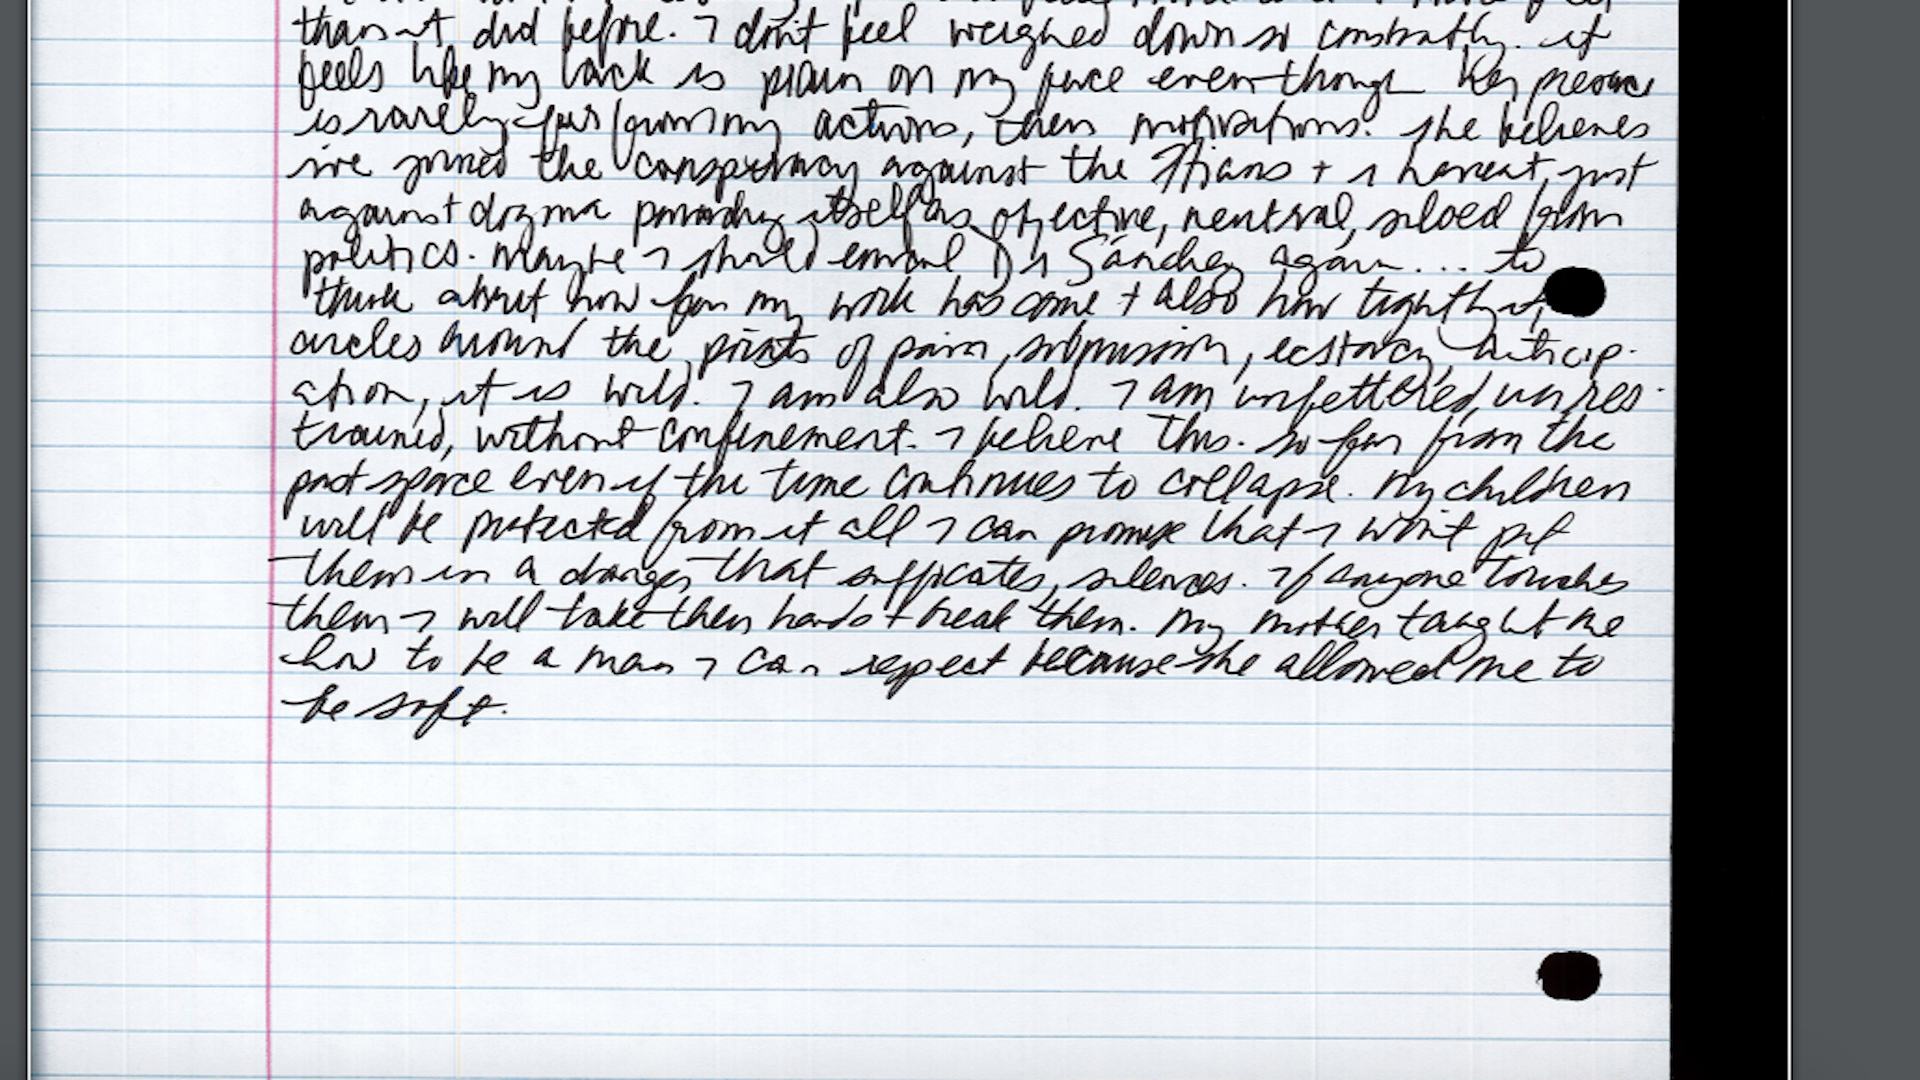 than it did before. I don't feel weighed down so constantly. it
feels like my lack is plain on my face even though her presence
is rarely far from my actions, then motivations. she believes
ive joined the conspiracy against the + I haven't, just
against dogma parading itself as objective, neutral, siloed from
politics. Maybe I should email Dr Sánchez again... to
think about how far my work has come + also how tightly it
circles around the points of pain, submission, ecstacy, anticip-
ation, it is wild. I am also wild. I am unfettered, unres-
trained, without confinement. I believe this. so far from the
past space even if the time continues to collapse. My children
will be protected from it all I can promise that I won't put
them in a danger that suffocates, silences. If anyone touches
them I will take their hands + break them. My mother taught me
how to be a man I can respect because she allowed me to
be soft.